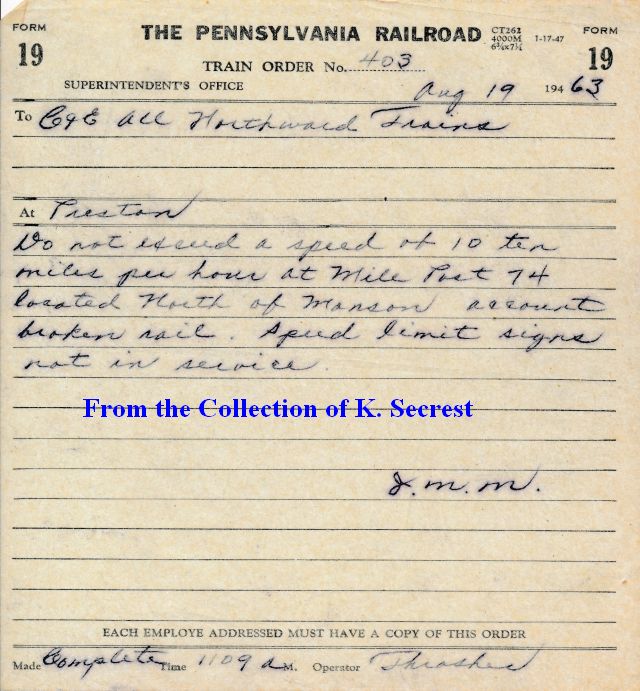 FORM 19
THE PENNSYLVANIA RAILROAD
CT262
4000M
6¾x7¼
1-17-47
FORM 19
TRAIN ORDER No. 403
SUPERINTENDENT'S OFFICE
Aug 19 194 63
To C&E All Northward Trains
At Preston
Do not exceed a speed of 10 ten
miles per hour at Mile Post 74
located North of Manson account
broken rail. Speed limit signs
not in service.
From the Collection of K. Secrest
J. M. M.
EACH EMPLOYE ADDRESSED MUST HAVE A COPY OF THIS ORDER
Made Complete Time 1109 a M. Operator Thrasher